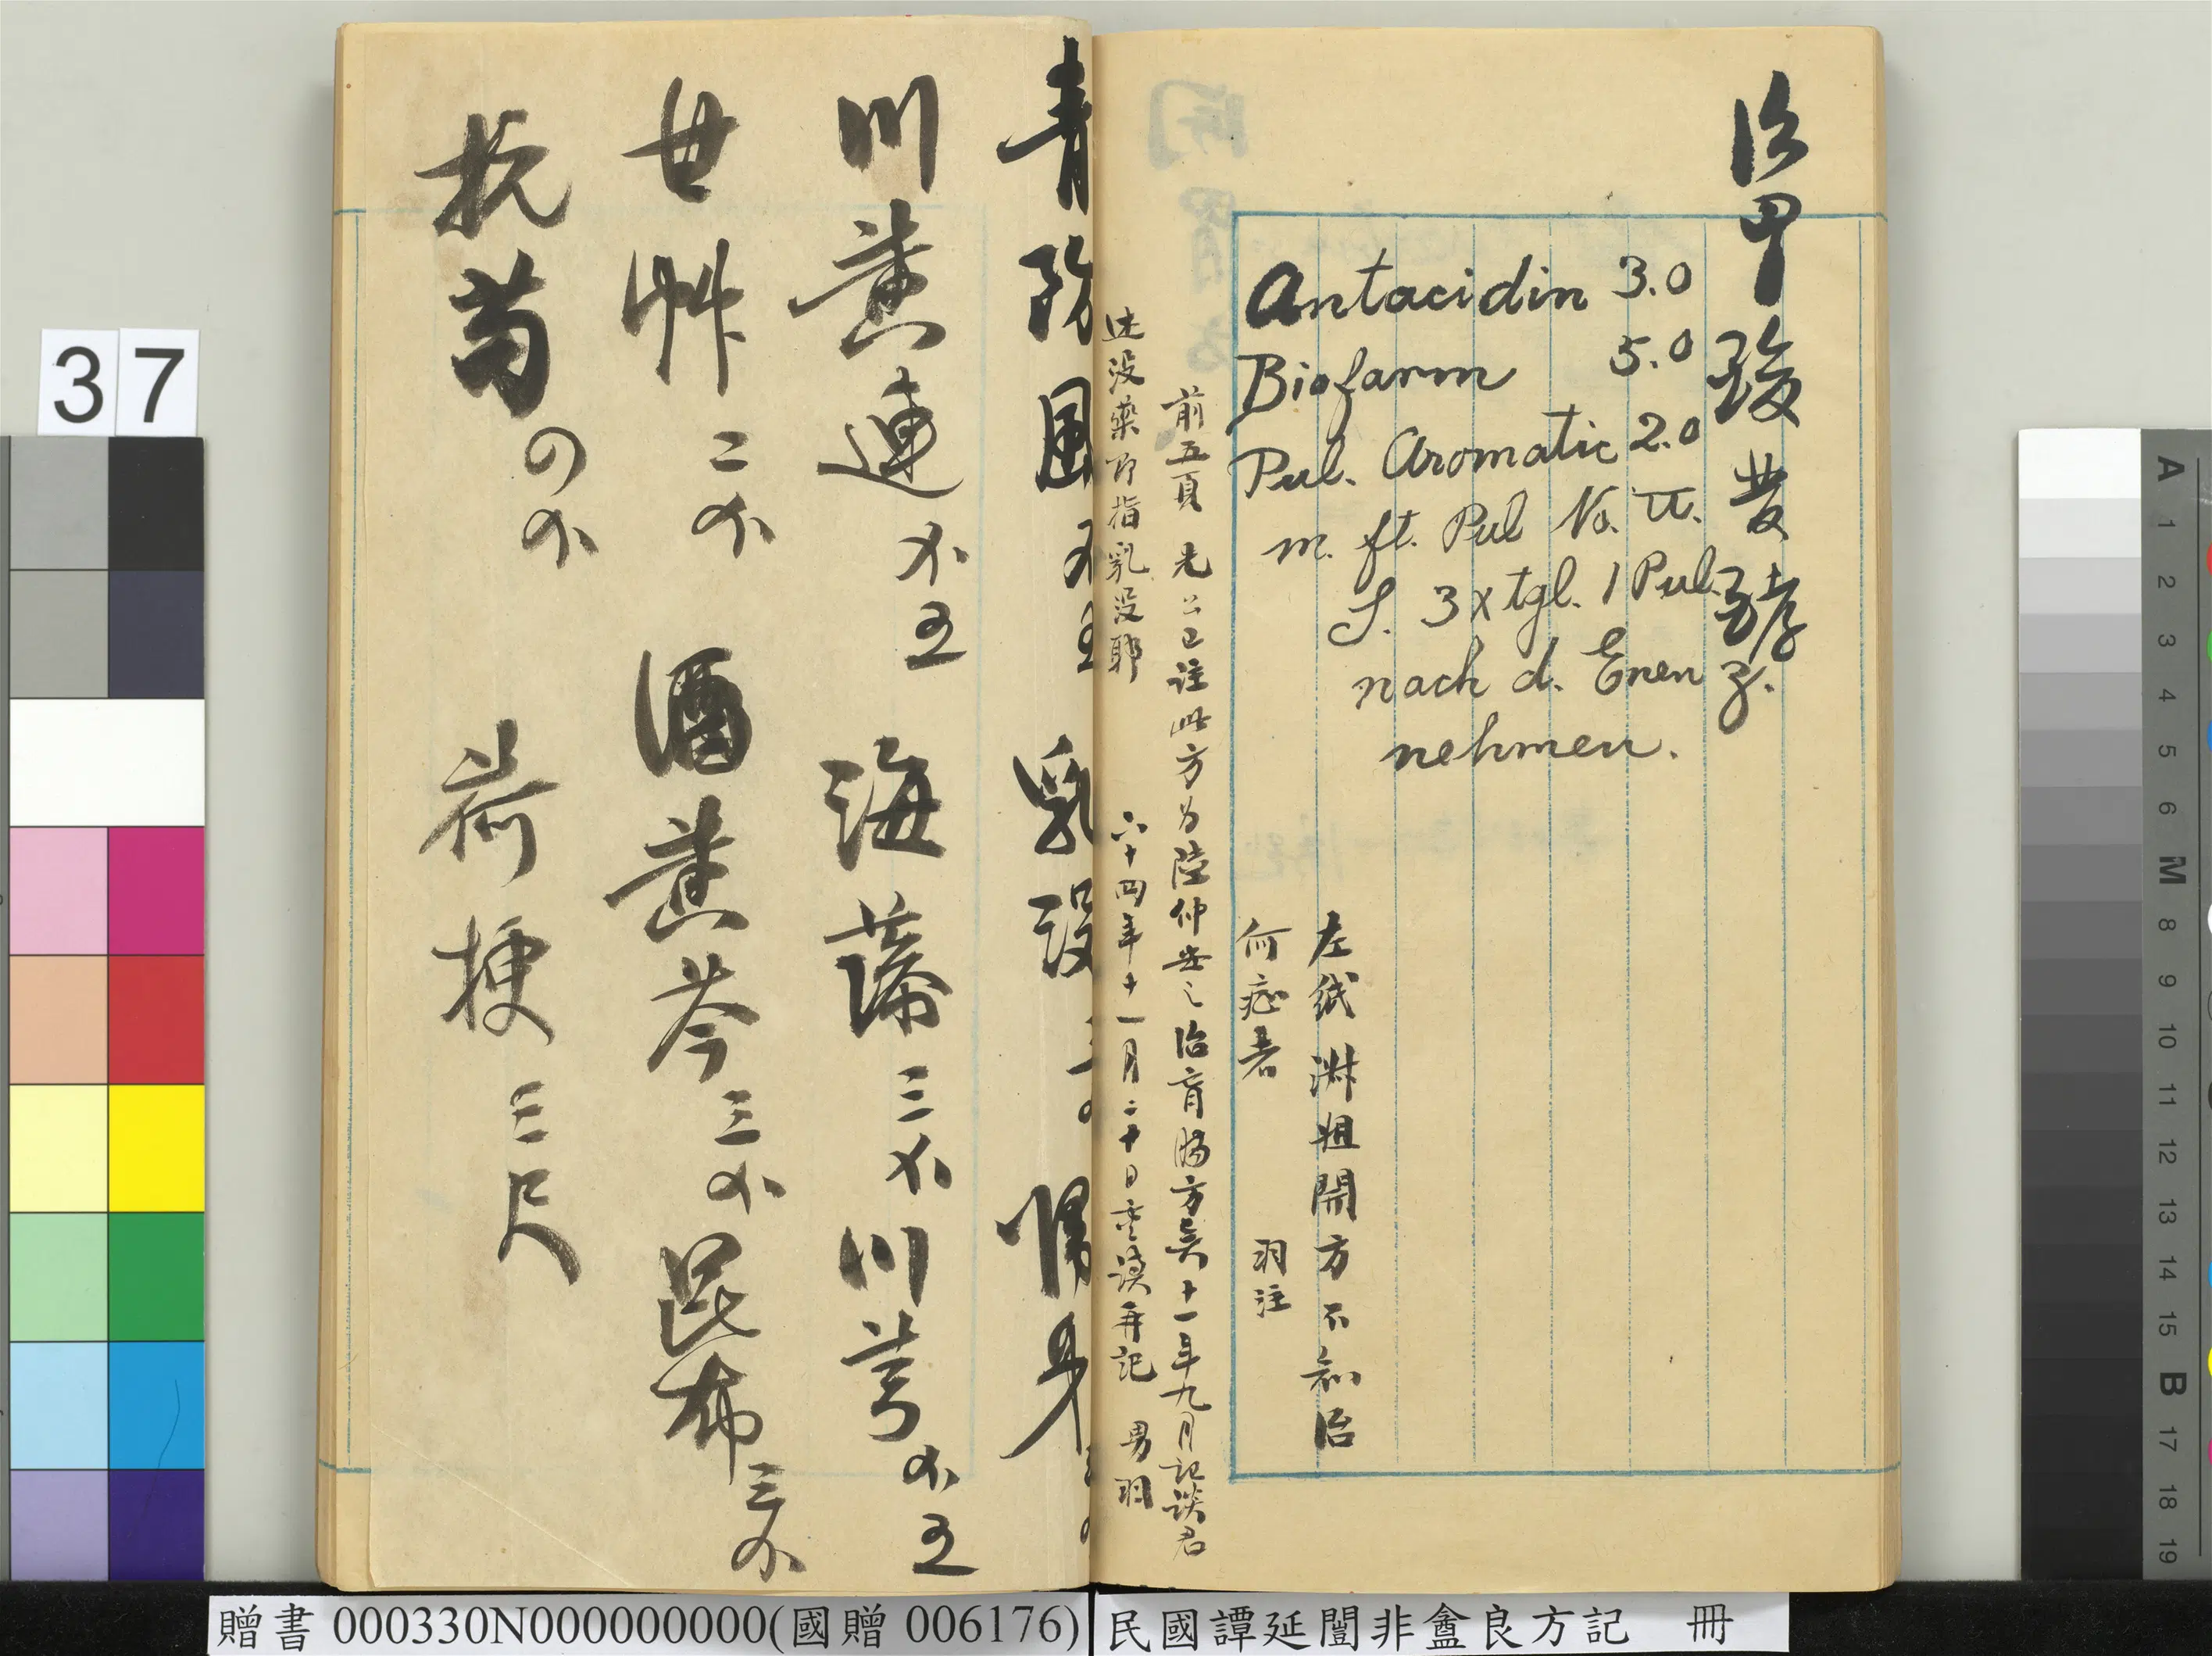 治胃酸發酵
Antacidin 3.0
Biofarm 5.0
Pul. Aromatic 2.0
m. ft. Pul No. VI.
S. 3 x tgl. 1 Pul.
nach d. Enen z.
nehmen.
左紙淋姐開方不知治
何症者 羽注
前五頁先公已註此方為陸仲安之治盲腸方矣十一年九月記談君
述没藥即指乳没耶 六十四年十一月二十日重讀再記 男羽
青防風
乳没 歸身
川黃連 海藻三 川芎
甘艸二 酒黃芩三 昆布三
杭菊 荷梗三尺
37
贈書 000330N000000000(國贈 006176)
民國譚延闓非盦良方記 冊
A 1 2 3 4 5 6 M 8 9 10 11 12 13 14 15 B 17 18 19